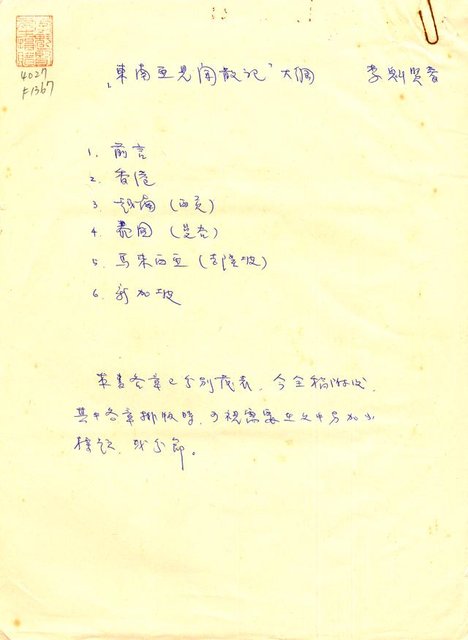 4027
#1367
「東南亜見聞散記」大綱 李魁賢
1. 前言
2. 香港
3. 越南 (西貢)
4. 泰国 (曼谷)
5. 馬来西亜 (吉隆坡)
6. 新加坡
本書各章已分別發表，今全稿附送，
其中各章排版時，可視需要在文中另加小
標題，或分節。